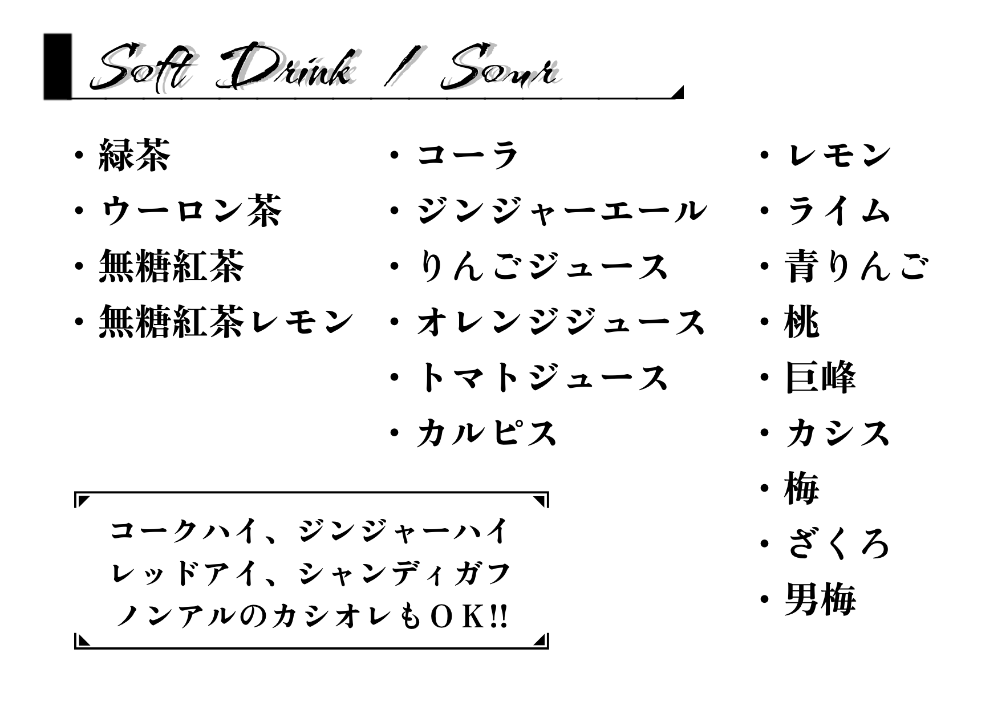 Soft Drink / Sour
・緑茶
・ウーロン茶
・無糖紅茶
・無糖紅茶レモン
・コーラ
・ジンジャーエール
・りんごジュース
・オレンジジュース
・トマトジュース
・カルピス
・レモン
・ライム
・青りんご
・桃
・巨峰
・カシス
・梅
・ざくろ
・男梅
コークハイ、ジンジャーハイ
レッドアイ、シャンディガフ
ノンアルのカシオレもＯＫ!!